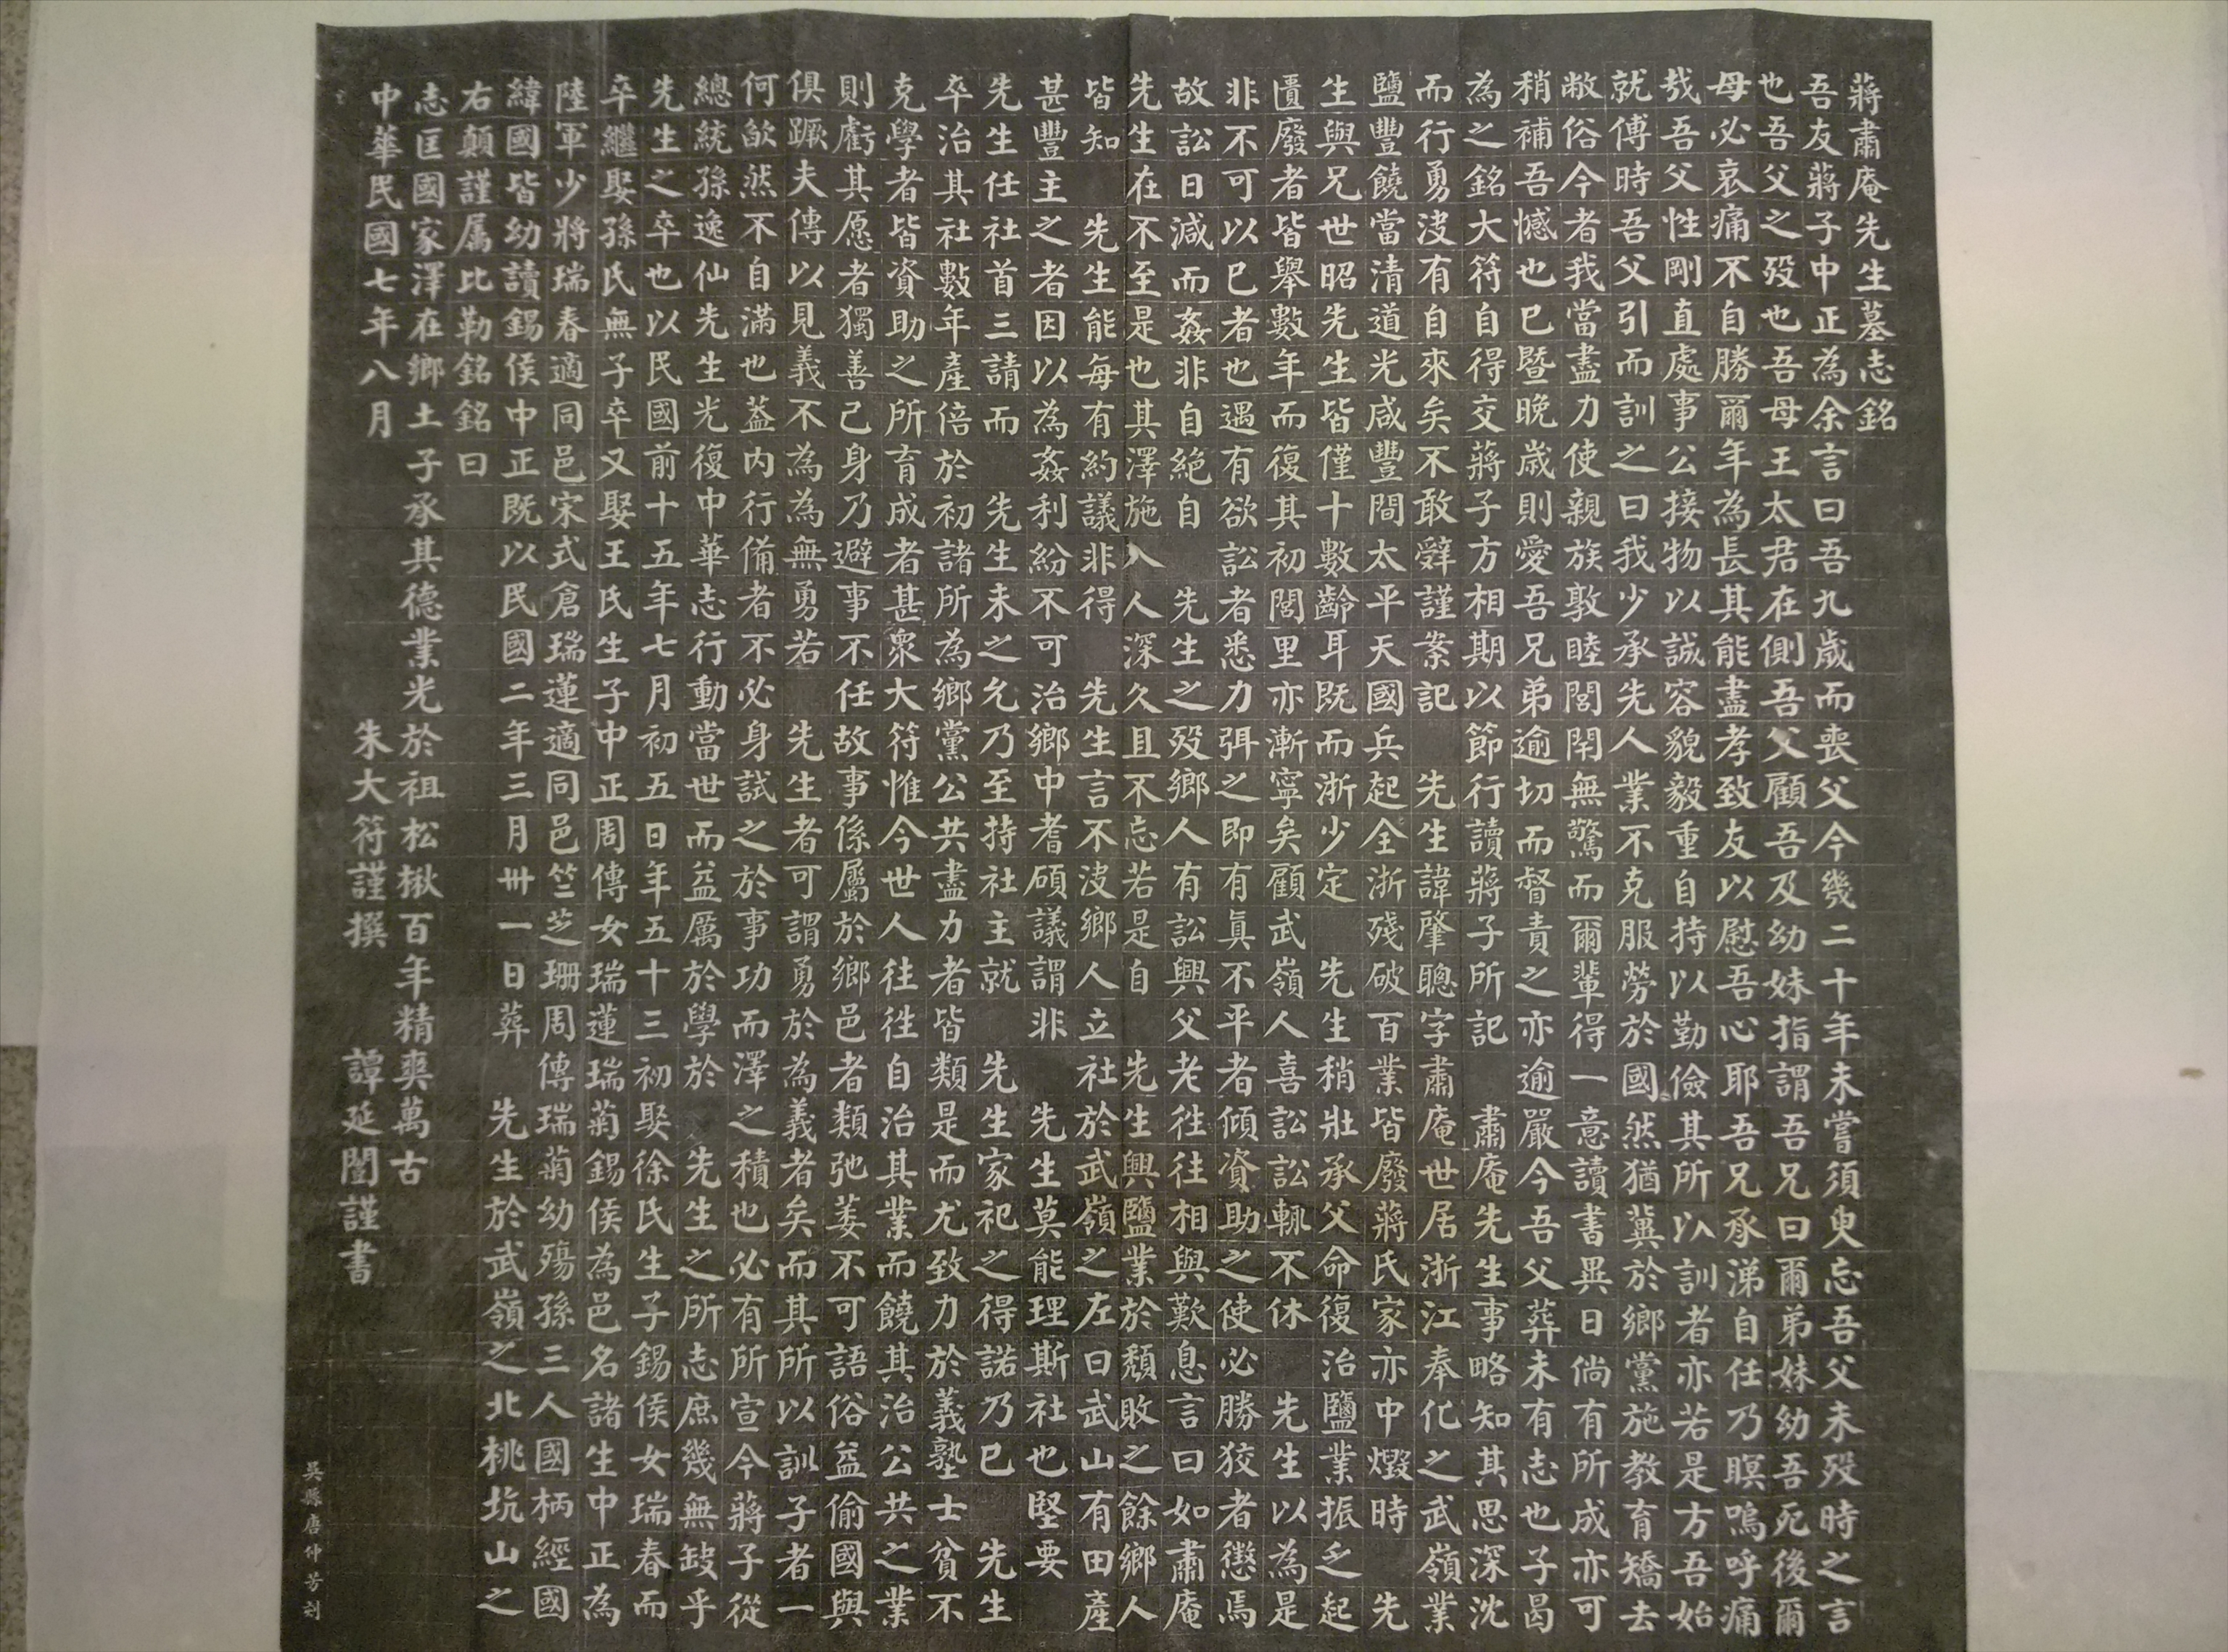 蔣肅庵先生墓志銘
吾友蔣子中正為余言曰吾九歲而喪父今幾二十年未嘗須臾忘吾父未歿時之言
也吾父之歿也吾母王太君在側吾父顧吾及幼妹指謂吾兄曰爾弟妹幼吾死後爾
母必哀痛不自勝爾年為長其能盡孝致友以慰吾心耶吾兄承涕自任乃瞑嗚呼痛
哉吾父性剛直處事公接物以誠容貌毅重自持以勤儉其所以訓者亦若是方吾始
就傅時吾父引而訓之曰我少承先人業不克服勞於國然猶冀於鄉黨施教育矯去
敝俗今者我當盡力使親族敦睦閭閈無驚而爾輩得一意讀書異日倘有所成亦可
稍補吾憾也已暨晚歲則愛吾兄弟逾切而督責之亦逾嚴今吾父葬未有志也子曷
為之銘大符自得交蔣子方相期以節行讀蔣子所記 肅庵先生事略知其思深沈
而行勇沒有自來矣不敢辭謹案記 先生諱肇聰字肅庵世居浙江奉化之武嶺業
鹽豐饒當清道光咸豐間太平天國兵起全浙殘破百業皆廢蔣氏家亦中燬時 先
生與兄世昭先生皆僅十數齡耳既而浙少定 先生稍壯承父命復治鹽業振乏起
匱廢者皆舉數年而復其初閭里亦漸寧矣顧武嶺人喜訟訟輒不休 先生以為是
非不可以已者也遇有欲訟者悉力弭之即有真不平者傾資助之使必勝狡者懲焉
故訟日減而姦非自絕自 先生之歿鄉人有訟興父老往往相與歎息言曰如肅庵
先生在不至是也其澤施入人深久且不忘若是自 先生興鹽業於頹敗之餘鄉人
皆知 先生能每有約議非得 先生言不決鄉人立社於武嶺之左曰武山有田產
甚豐主之者因以為姦利紛不可治鄉中耆碩議謂非 先生莫能理斯社也堅要
先生任社首三請而 先生未之允乃至持社主就 先生家祀之得諾乃已 先生
卒治其社數年產倍於初諸所為鄉黨公共盡力者皆類是而尤致力於義塾士貧不
克學者皆資助之所育成者甚衆大符惟今世人往往自治其業而饒其治公共之業
則虧其愿者獨善己身乃避事不任故事係屬於鄉邑者類弛萎不可語俗益偷國與
俱蹶夫傳以見義不為為無勇若 先生者可謂勇於為義者矣而其所以訓子者一
何欿然不自滿也蓋內行備者不必身試之於事功而澤之積也必有所宣今蔣子從
總統孫逸仙先生光復中華志行動當世而益厲於學於 先生之所志庶幾無缺乎
先生之卒也以民國前十五年七月初五日年五十三初娶徐氏生子錫侯女瑞春而
卒繼娶孫氏無子卒又娶王氏生子中正周傳女瑞蓮瑞菊錫侯為邑名諸生中正為
陸軍少將瑞春適同邑宋式倉瑞蓮適同邑竺芝珊周傳瑞菊幼殤孫三人國柄經國
緯國皆幼讀錫侯中正既以民國二年三月卅一日葬 先生於武嶺之北桃坑山之
右顛謹屬比勒銘銘曰
志匡國家澤在鄉土子承其德業光於祖松楸百年精爽萬古
中華民國七年八月 朱大符謹撰 譚延闓謹書
吳縣唐仲芳刻